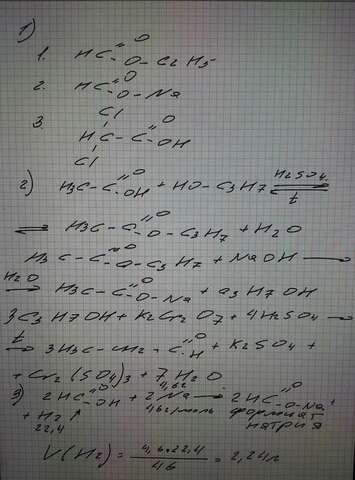 1)
1. HC=O-O-C2H5
2. HC=O-O-Na
3. Cl
HC-C=O-OH
Cl
2) H3C-C=O-OH + HO-C3H7 ⇌ H2SO4 t
⇌ H3C-C=O-O-C3H7 + H2O
H3C-C=O-O-C3H7 + NaOH ⟶
H2O ⟶ H3C-C=O-O-Na + C3H7OH
3C3H7OH + K2Cr2O7 + 4H2SO4 ⟶
t ⟶ 3H3C-CH2-C=O-H + K2SO4 +
+ Cr2(SO4)3 + 7H2O
3) 2HC=O-OH + 2Na ⟶ 2HC=O-O-Na +
4,6г 46г/моль формиат
+ H2↑ натрия
22,4
V(H2) = 4,6·22,4 / 46 = 2,24л